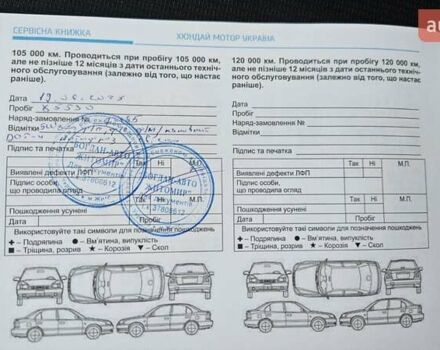 СЕРВІСНА КНИЖКА
ХЮНДАЙ МОТОР УКРАЇНА
105 000 км. Проводиться при пробігу 105 000 км,
але не пізніше 12 місяців з дати останнього техніч-
ного обслуговування (залежно від того, що настає
раніше).
Дата
Пробіг
Наряд-замовлення №
Відмітки
Підпис та печатка
Так Ні
Виявлені дефекти ЛФП
Підпис особи,
що проводила огляд
Пошкодження усунені
Дата Пробіг
Використовуйте такі символи для позначення пошкоджень
✚ – Подряпина ● – Вм'ятина, випуклість
■ – Тріщина, розрив ★ – Корозія ▼ – Скол
БОГДАН-АВТО
ЖИТОМИР
Для документів
37808612
БОГДАН-АВТО
ЖИТОМИР
Для документів
37808612
120 000 км. Проводиться при пробігу 120 000 км,
але не пізніше 12 місяців з дати останнього техніч-
ного обслуговування (залежно від того, що настає
раніше).
Дата
Пробіг
Наряд-замовлення №
Відмітки
Підпис та печатка
Так Ні М.П.
Виявлені дефекти ЛФП
Підпис особи,
що проводила огляд
Так Ні М.П.
Пошкодження усунені
Дата Пробіг
Використовуйте такі символи для позначення пошкоджень
✚ – Подряпина ● – Вм'ятина, випуклість
■ – Тріщина, розрив ★ – Корозія ▼ – Скол